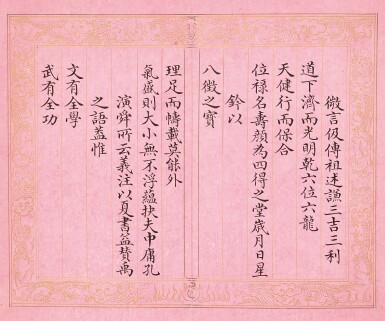 微言伋傳祖述謙三吉三利
道下濟而光明乾六位六龍
天健行而保合
位祿名壽顏為四得之堂歲月日星
鈐以
八徵之寶
理足而幬載莫能外
氣盛則大小無不浮蘊扶夫中庸孔
演舜所云義注以夏書益贊禹
之語蓋惟
文有全學
武有全功